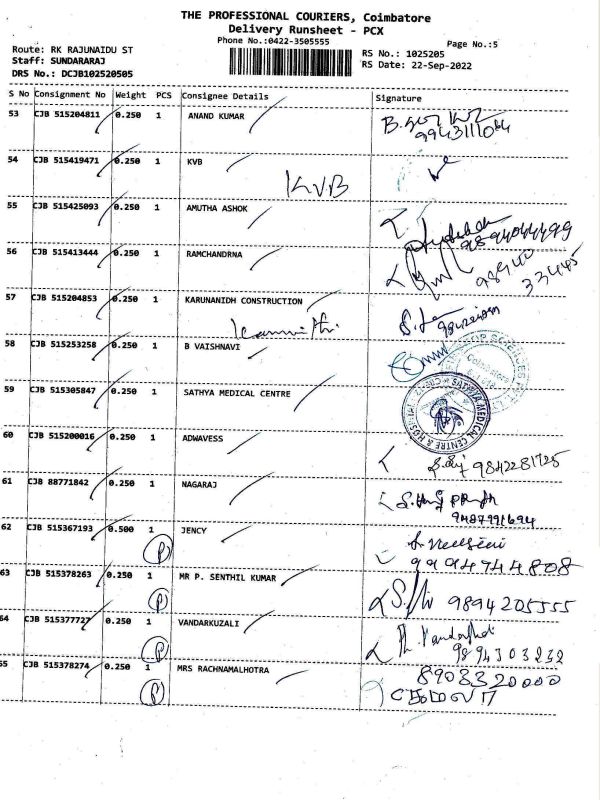 THE PROFESSIONAL COURIERS, Coimbatore
Delivery Runsheet - PCX
Phone No.:0422-3505555
Page No.:5
Route: RK RAJUNAIDU ST
RS No.: 1025205
Staff: SUNDARARAJ
RS Date: 22-Sep-2022
DRS No.: DCJB102520505
S No Consignment No Weight PCS Consignee Details Signature
53 CJB 515204811 0.250 1 ANAND KUMAR
9943111064
54 CJB 515419471 0.250 1 KVB
KVB
55 CJB 515425093 0.250 1 AMUTHA ASHOK
9894044499
56 CJB 515413444 0.250 1 RAMCHANDRNA
98940
33445
57 CJB 515204853 0.250 1 KARUNANIDH CONSTRUCTION
58 CJB 515253258 0.250 1 B VAISHNAVI
Coimbatore
59 CJB 515305847 0.250 1 SATHYA MEDICAL CENTRE
SATHYA MEDICAL CENTRE & HOSPITAL
60 CJB 515200016 0.250 1 ADWAVESS
9842281725
61 CJB 88771842 0.250 1 NAGARAJ
9487991694
62 CJB 515367193 0.500 1 JENCY
P
9994744808
63 CJB 515378263 0.250 1 MR P. SENTHIL KUMAR
P 9894205555
64 CJB 515377727 0.250 1 VANDARKUZALI
P
9894303232
65 CJB 515378274 0.250 1 MRS RACHNAMALHOTRA
8908320000
P